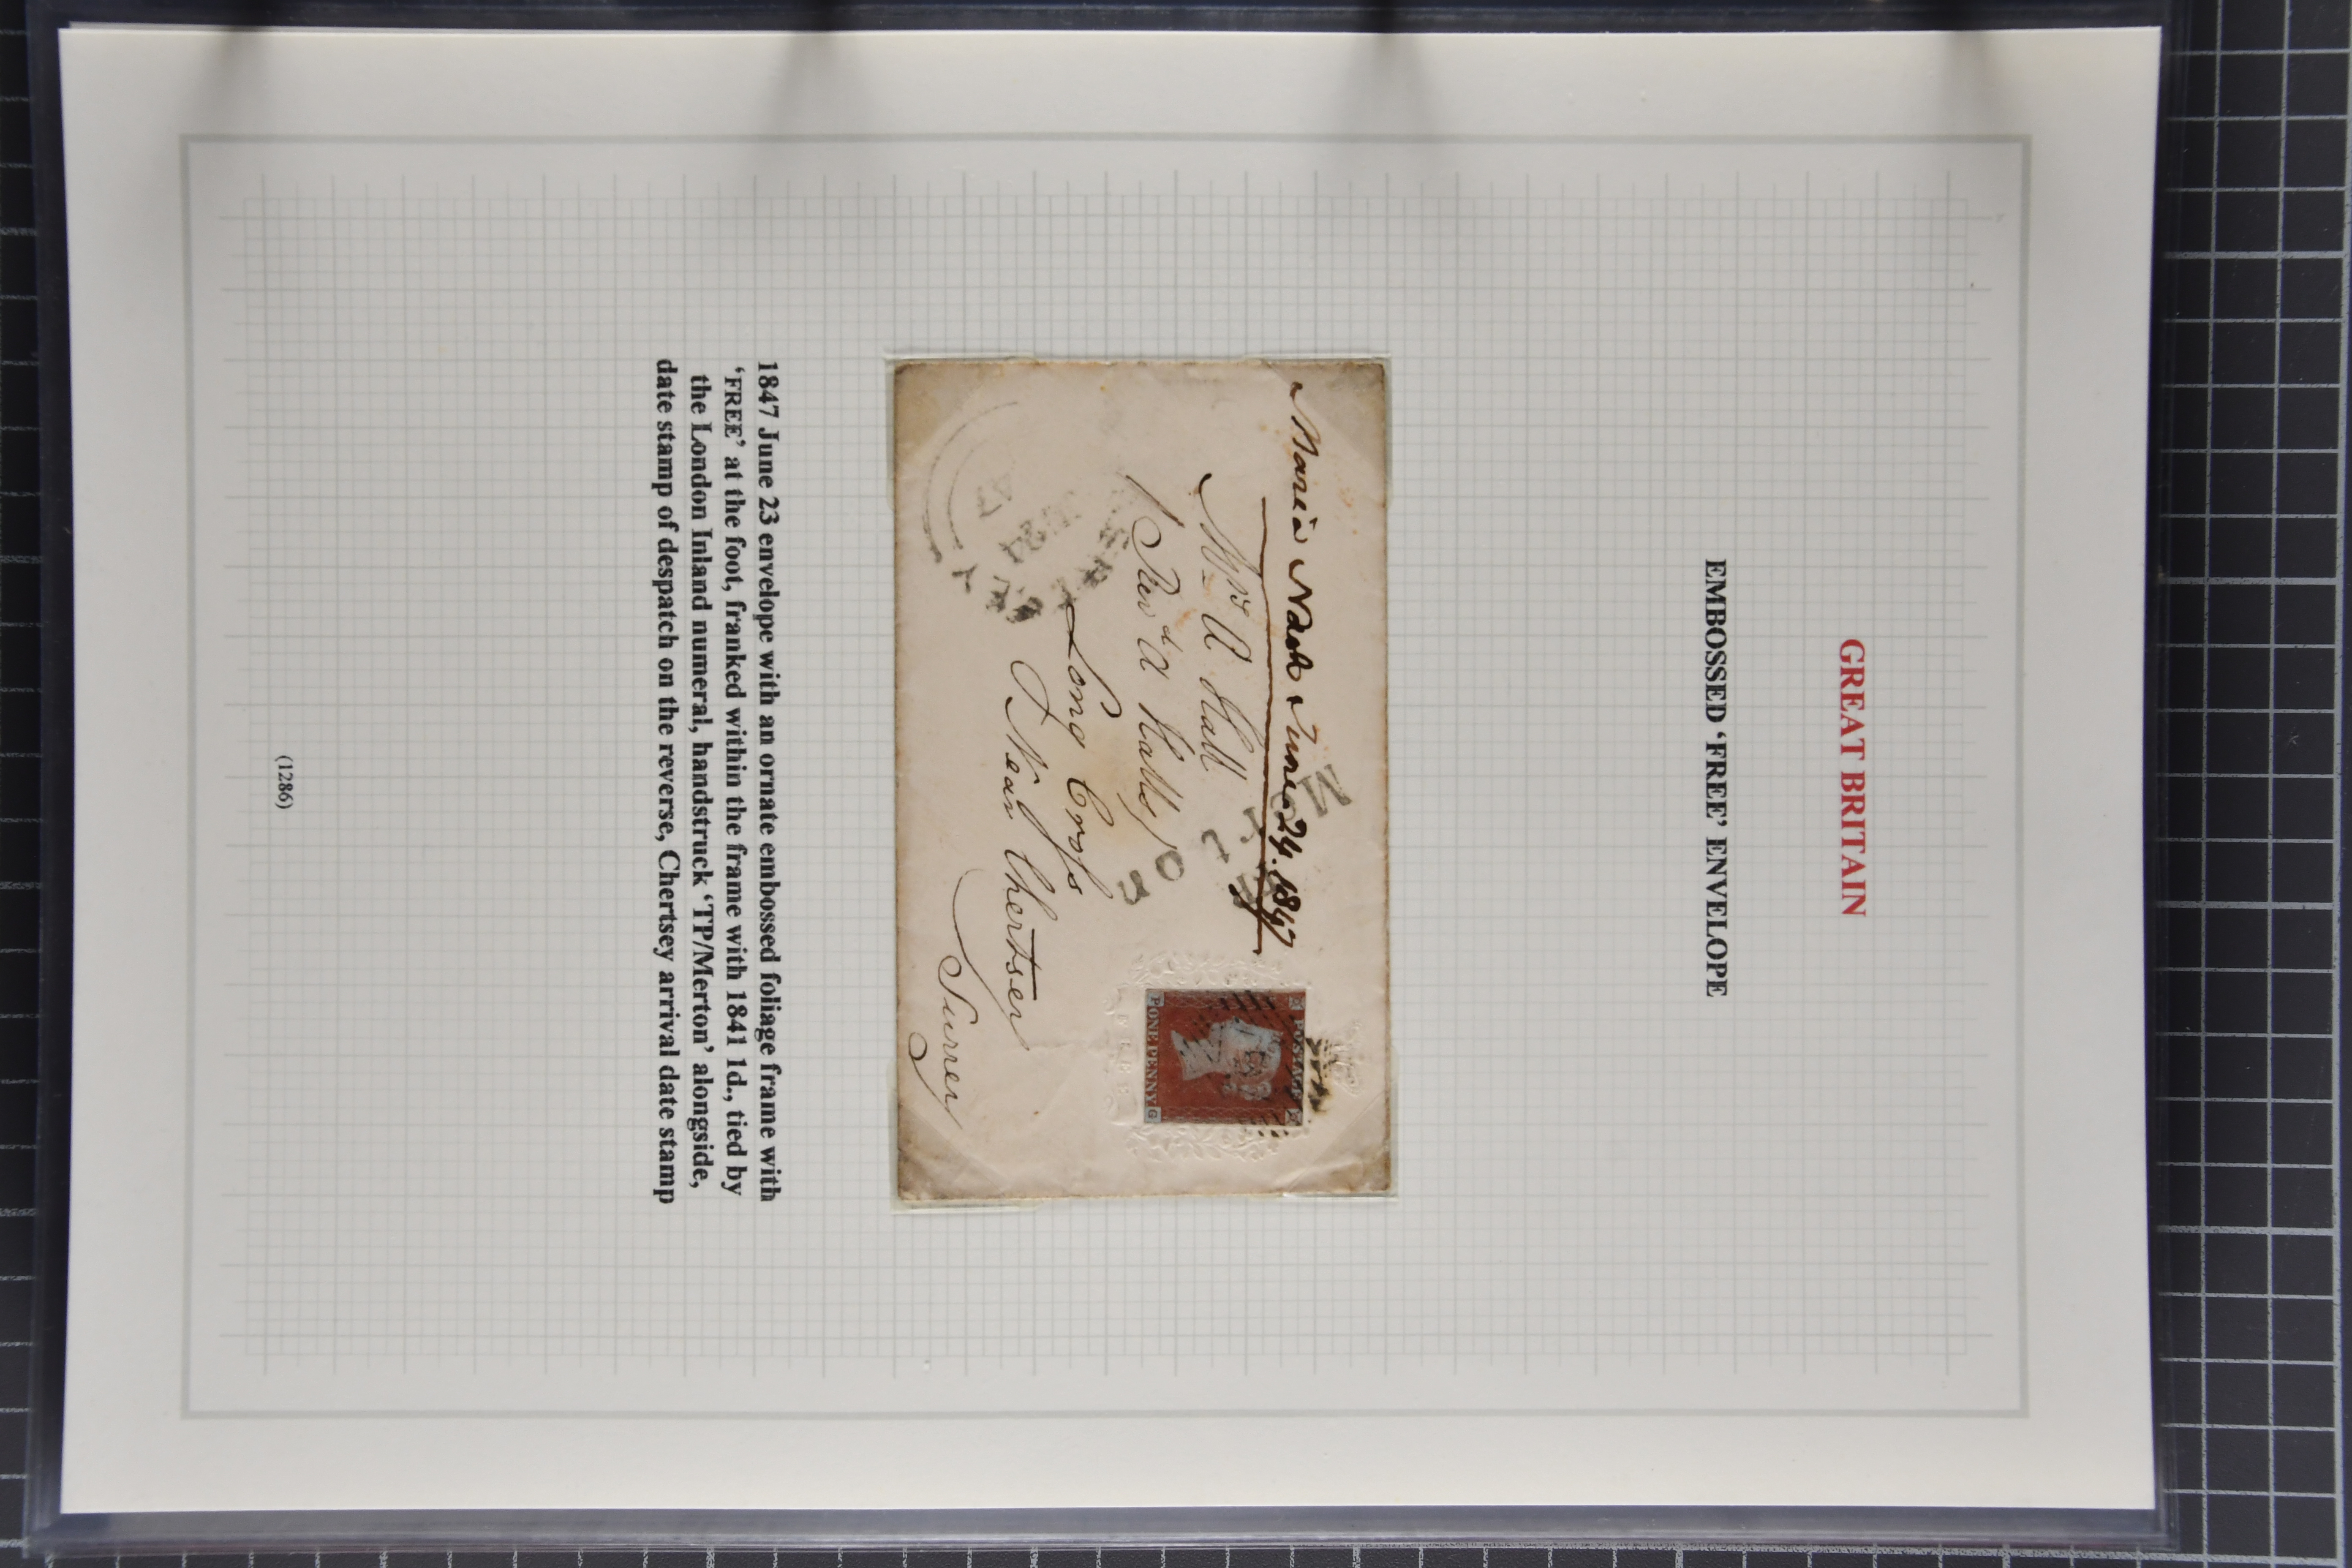 GREAT BRITAIN
EMBOSSED ‘FREE’ ENVELOPE
Maria Nash June 24. 1847
Mrs A Hall
Revd A Halls
Long Cross
Near Chertsey
Surrey
POSTAGE
ONE PENNY
P G
FREE
1847 June 23 envelope with an ornate embossed foliage frame with
‘FREE’ at the foot, franked within the frame with 1841 1d., tied by
the London Inland numeral, handstruck ‘TP/Merton’ alongside,
date stamp of despatch on the reverse, Chertsey arrival date stamp
(1286)